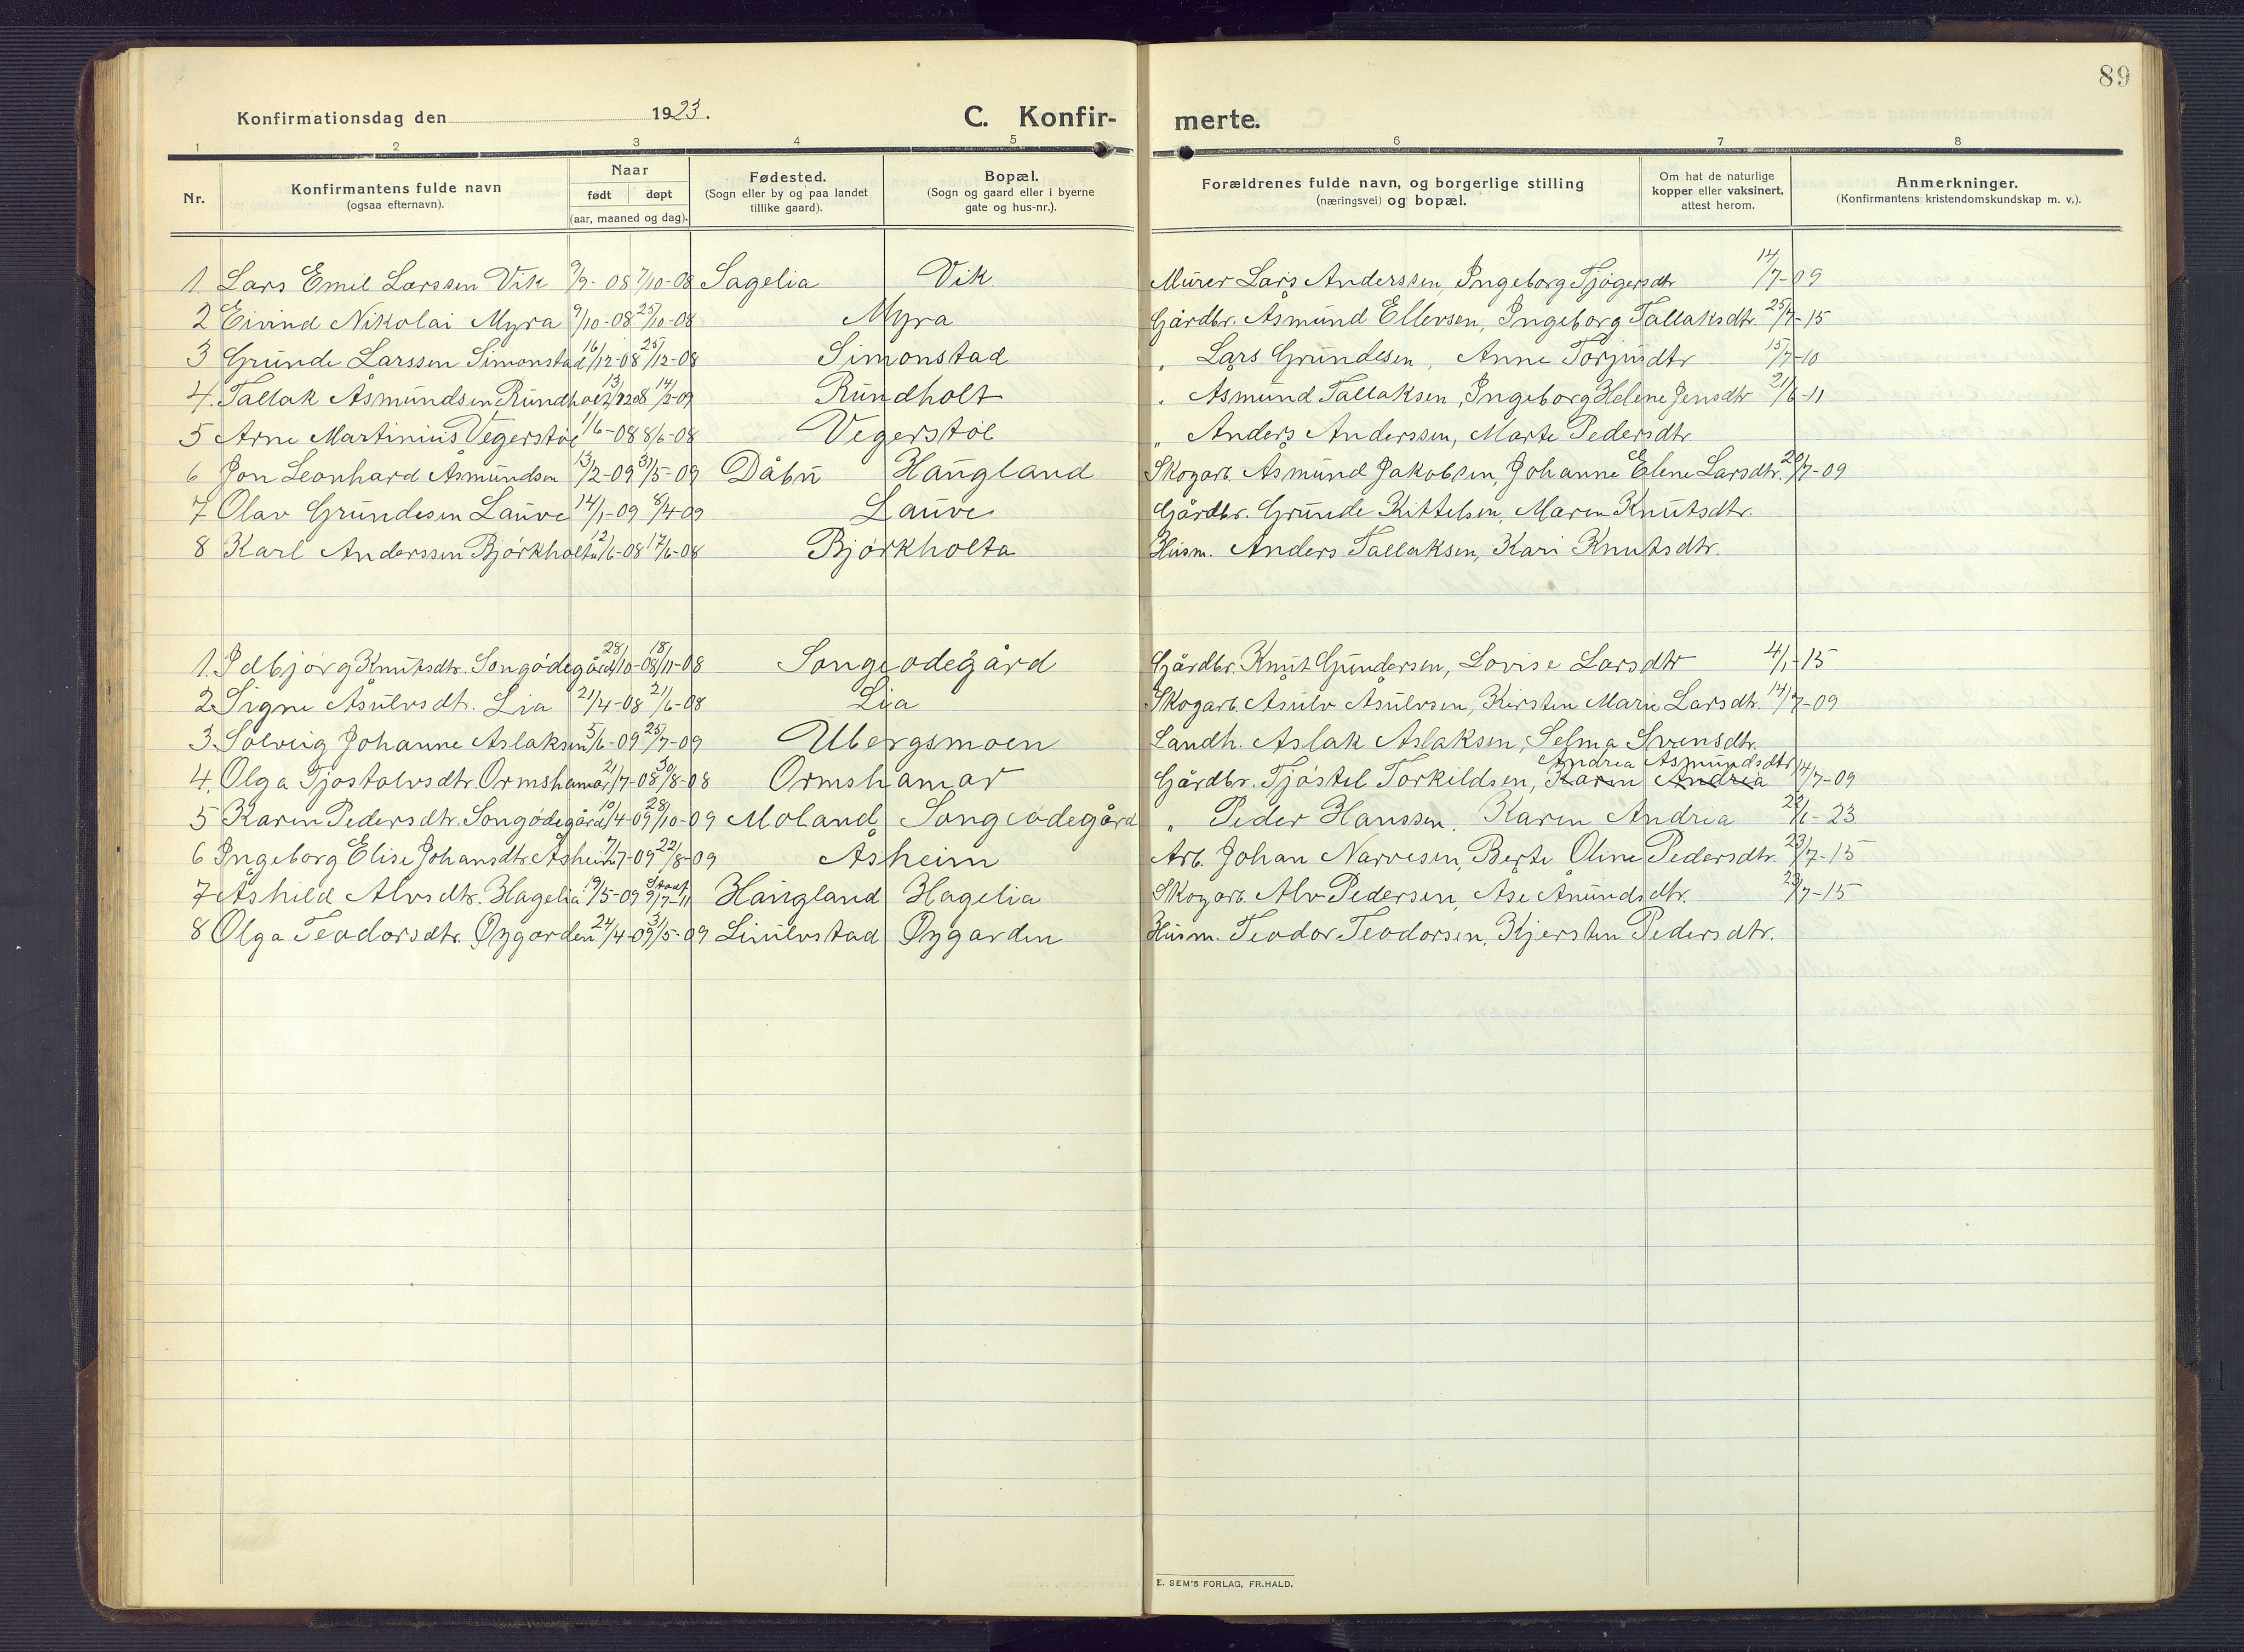 89
Konfirmationsdag den 1923. C. Konfirmerte.
1 2 3 4 5 6 7 8
Nr. Konfirmantens fulde navn (ogsaa efternavn). Naar født døpt (aar, maaned og dag). Fødested. (Sogn eller by og paa landet tillike gaard). Bopæl. (Sogn og gaard eller i byerne gate og hus-nr.). Forældrenes fulde navn, og borgerlige stilling (næringsvei) og bopæl. Om hat de naturlige kopper eller vaksinert, attest herom. Anmerkninger. (Konfirmantens kristendomskundskap m. v.).
1. Lars Emil Larssen Vik 9/9-08 7/10-08 Sagelia Vik Murer Lars Anderssen, Ingeborg Tjøgersdtr 14/7-09
2 Eivind Nikolai Myra 9/10-08 25/10-08 Myra Gårdbr. Åsmund Ellevsen, Ingeborg Tallaksdtr. 25/7-15
3 Grunde Larssen Simonstad 16/12-08 25/12-08 Simonstad " Lars Grundesen, Anne Torjusdtr 15/7-10
4. Tallak Åsmundsen Rundholt 13/12 08 14/2-09 Rundholt " Åsmund Tallaksen, Ingeborg Helene Jensdtr 21/6-11
5 Arne Martinius Vegerstøl 1/6-08 8/6-08 Vegerstøl " Anders Anderssen, Marte Pedersdtr
6 Jon Leonhard Åsmundsen 13/2-09 31/5-09 Dåbu Haugland Skogarb. Åsmund Jakobsen, Johanne Elene Larsdtr. 20/7-09
7 Olav Grundesen Lauve 14/1-09 8/4-09 Lauve Gårdbr. Grunde Kittelsen, Maren Knutsdtr.
8 Karl Anderssen Bjørkholta 12/6-08 17/6-08 Bjørkholta Husm. Anders Tallaksen, Kari Knutsdtr.
1. Idbjørg Knutsdtr. Songødegård 28/10-08 18/11-08 Songeødegård Gårdbr. Knut Gundersen, Lovise Larsdtr 4/1-15
2 Signe Åsulvsdt. Lia 21/4-08 21/6-08 Lia Skogarb. Åsulv Åsulvsen, Kirsten Marie Larsdtr. 14/7-09
3. Solveig Johanne Aslaksen 5/6-09 25/7-09 Ubergsmoen Landh. Aslak Aslaksen, Selma Svensdtr.
Andrea Asmundsdtr
4. Olga Tjøstolvsdtr. Ormshamar 21/7-08 30/8-08 Ormshamar Gårdbr. Tjøstel Torkildsen, Karen Andrea 14/7-09
5 Karen Pedersdtr. Songødegård 10/4-09 28/10-09 Moland Songeødegård " Peder Hanssen, Karen Andrea 22/1-23
6 Ingeborg Elise Johansdtr. Åsheim 7/7-09 22/8-09 Åsheim Arb. Johan Narvesen, Berte Oline Pedersdtr. 23/7-15
7 Åshild Alvsdtr. Hagelia 19/5-09 9/7-11 Haugland Hagelia Skogarb. Alv Pedersen, Åse Ånundsdtr. 23/7-15
8 Olga Teodorsdtr. Øygarden 24/4-09 31/5-09 Liuulvstad Øygarden Husm. Teodor Teodorsen, Kjersten Pedersdtr.
E. SEM'S FORLAG, FR.HALD.